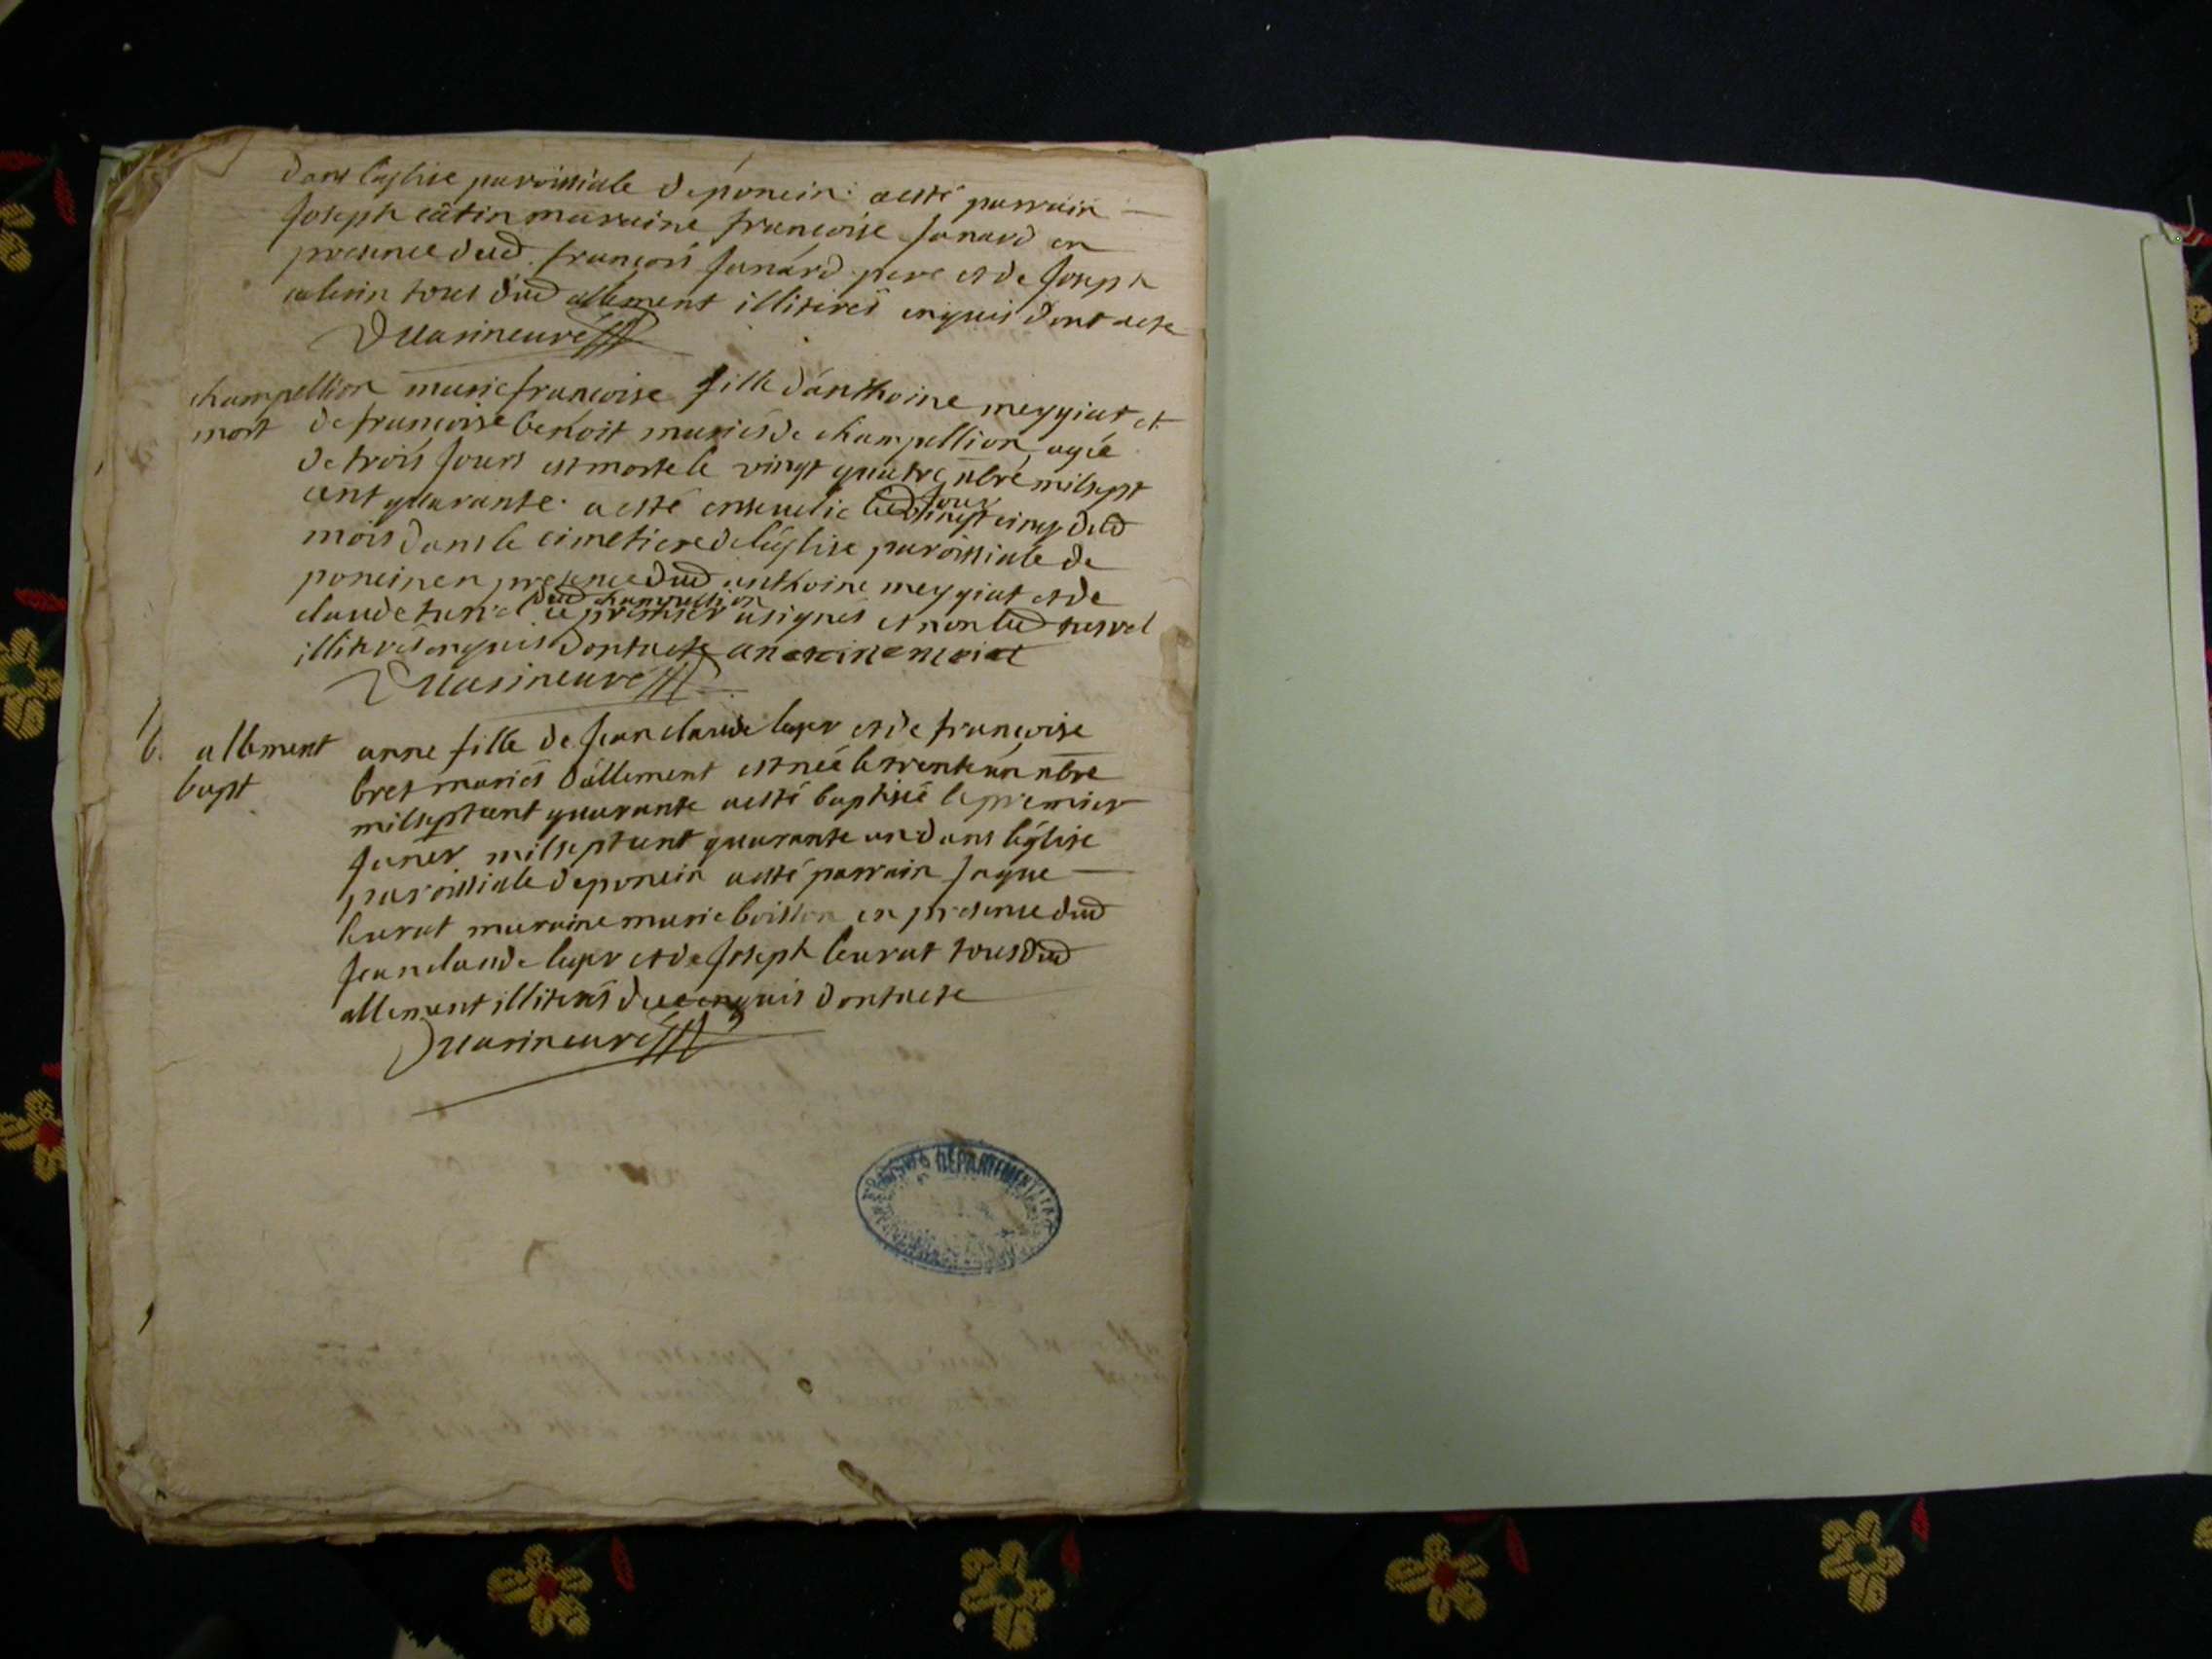 dans l'aglise paroissiale de poncin a esté parrain
Joseph câtin maraine francoise Janard en
presence dud. françois Janard pere et de Joseph
tous dud allement illiterés enquis dont acte
Duasincuré
champellion marie francoise fille d'anthoine meygiat et
mort de francoise benoit mariés de champellion, agée
de trois Jours est morte le vingt quatre xbre milsept
cent quarante. a esté ensevelie vingt cinq dud
mois dans le cimetiere de l'église paroissiale de
poncin en presence dud anthoine meygiat et de
dud champellion
claude le premier a signés et non led
illiterés enquis dont acte
Duasincuré
b. allement anne fille de Jean claude leger et de françoise
bapt bret mariés d'allement est néé le trente un xbre
milseptcent quarante a esté baptisée le premier
Janer milseptcent quarante un dans l'église
paroissiale de poncin a esté parrain Jaque
leurat maraine marie boisson en presence dud
Jean claude leger et de Joseph leurat tous dud
allement illiterés enquis dont acte
Duasincuré
ARCHIVES DÉPARTEMENTALES